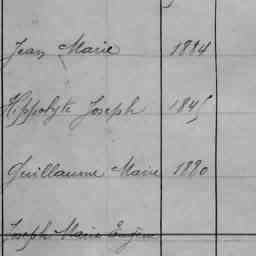 Jean Marie 1884
Hippolyte Joseph 1845
Guillaume Marie 1880
Joseph Marie Eugène